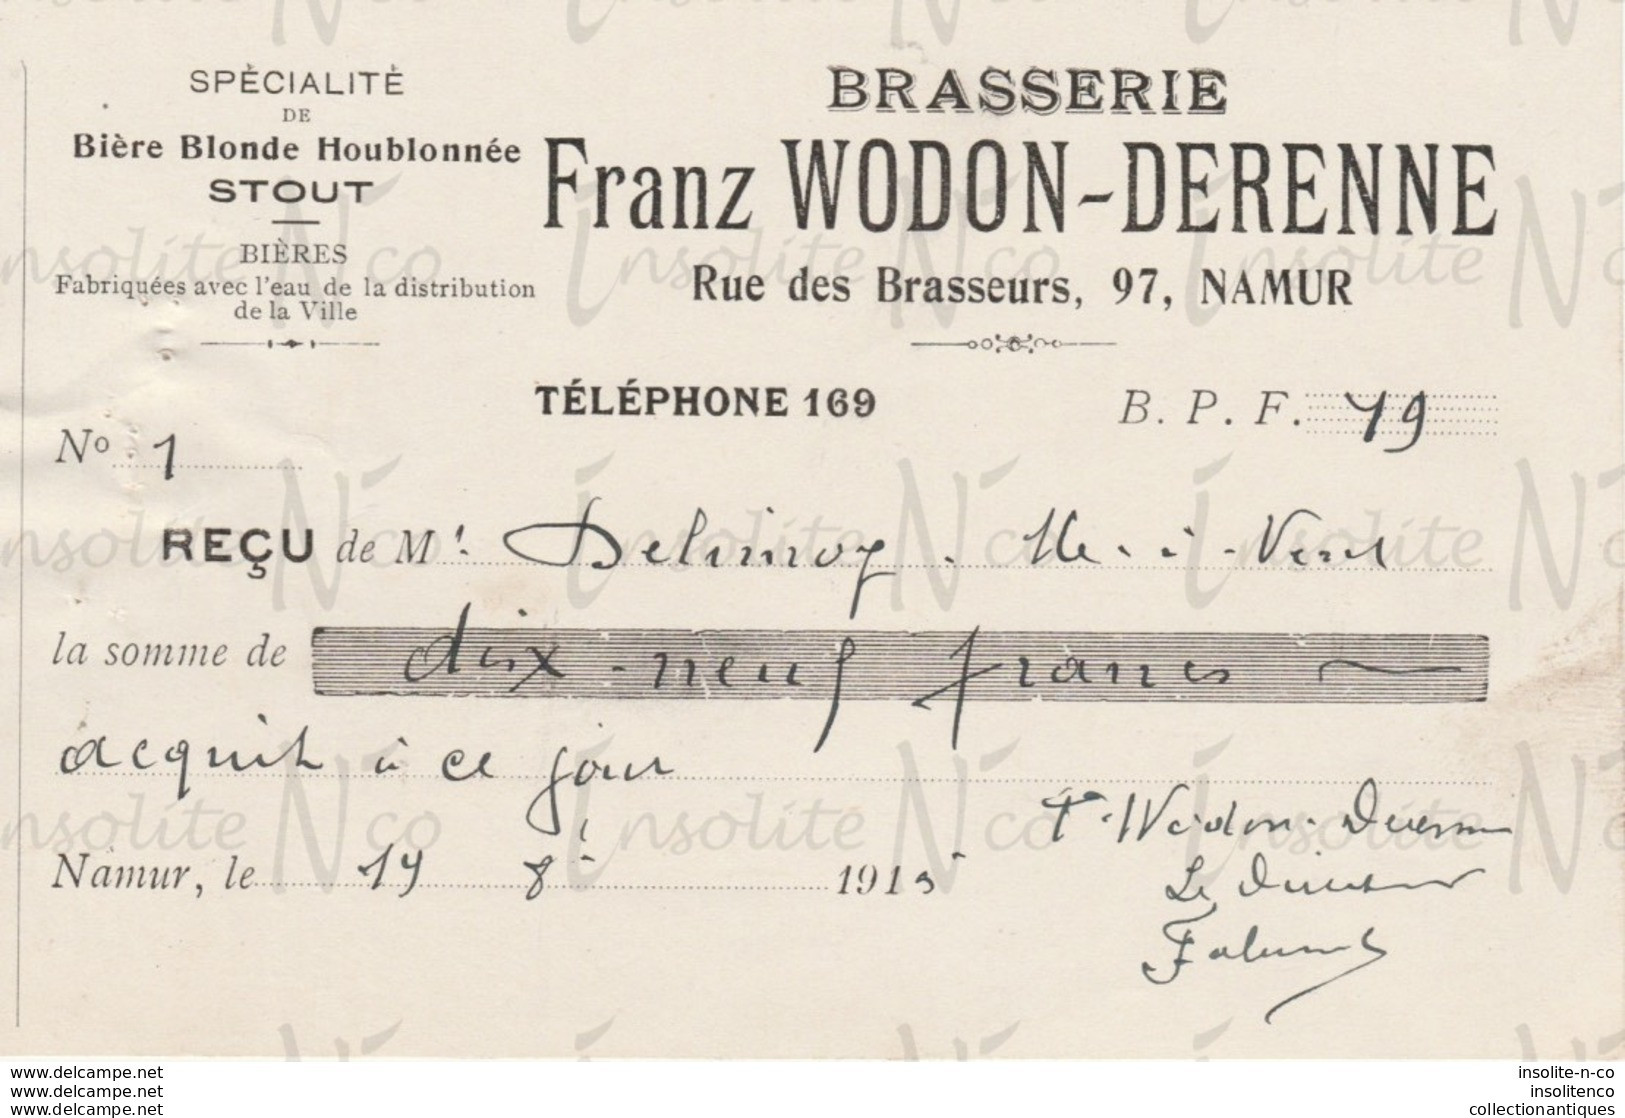 SPÉCIALITÉ
DE
Bière Blonde Houblonnée
STOUT
BIÈRES
Fabriquées avec l'eau de la distribution
de la Ville
BRASSERIE
Franz WODON-DERENNE
Rue des Brasseurs, 97, NAMUR
TÉLÉPHONE 169
B. P. F. 19
No 1
REÇU de Mr.
la somme de dix-neuf francs
acquit à ce jour
Namur, le 19 8 1915
Wodon-Derenne
Le
insolite-n-co.eu
insolite-n-co.net
insolite-n-co.com
insolite-n-co
insolitenco
collectionantiques